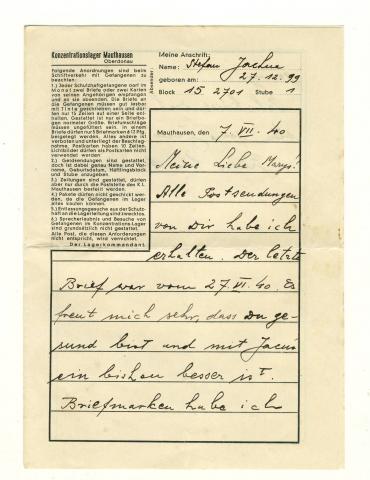 Konzentrationslager Mauthausen
Oberdonau
Folgende Anordnungen sind beim
Schriftverkehr mit Gefangenen zu
beachten:
1.) Jeder Schutzhaftgefangene darf im
Monat zwei Briefe oder zwei Karten
von seinen Angehörigen empfangen
und an sie absenden. Die Briefe an
die Gefangenen müssen gut lesbar
mit Tinte geschrieben sein und dür-
fen nur 15 Zeilen auf einer Seite ent-
halten. Gestattet ist nur ein Briefbo-
gen normaler Größe. Briefumschläge
müssen ungefüttert sein. In einem
Briefe dürfen nur 5 Briefmarken à 12 Pfg.
beigelegt werden. Alles andere ist
verboten und unterliegt der Beschlag-
nahme. Postkarten haben 10 Zeilen.
Lichtbilder dürfen als Postkarten nicht
verwendet werden.
2.) Geldsendungen sind gestattet,
doch ist dabei genau Name und Vor-
name, Geburtsdatum, Häftlingsblock
und Stube anzugeben.
3.) Zeitungen sind gestattet, dürfen
aber nur durch die Poststelle des K.L.
Mauthausen bestellt werden.
4.) Pakete dürfen nicht geschickt wer-
den, da die Gefangenen im Lager
alles kaufen können.
5.) Entlassungsgesuche aus der Schutz-
haft an die Lagerleitung sind zwecklos.
6.) Sprecherlaubnis und Besuche von
Gefangenen im Konzentrations-Lager
sind grundsätzlich nicht gestattet.
Alle Post, die diesen Anforderungen
nicht entspricht, wird vernichtet.
Der Lagerkommandant.
Absender:
Meine Anschrift:
Name: Stefan
geboren am: 27.12.99
Block 15 2701 Stube 1
Mauthausen, den 7. VII. 40
Meine Liebe
Alle Postsendungen
von dir habe ich
erhalten. Der letzte
Brief war vom 27. VI. 40. Es
freut mich sehr, dass Du ge-
sund bist und mit
ein bishen besser ist.
Briefmarken habe ich